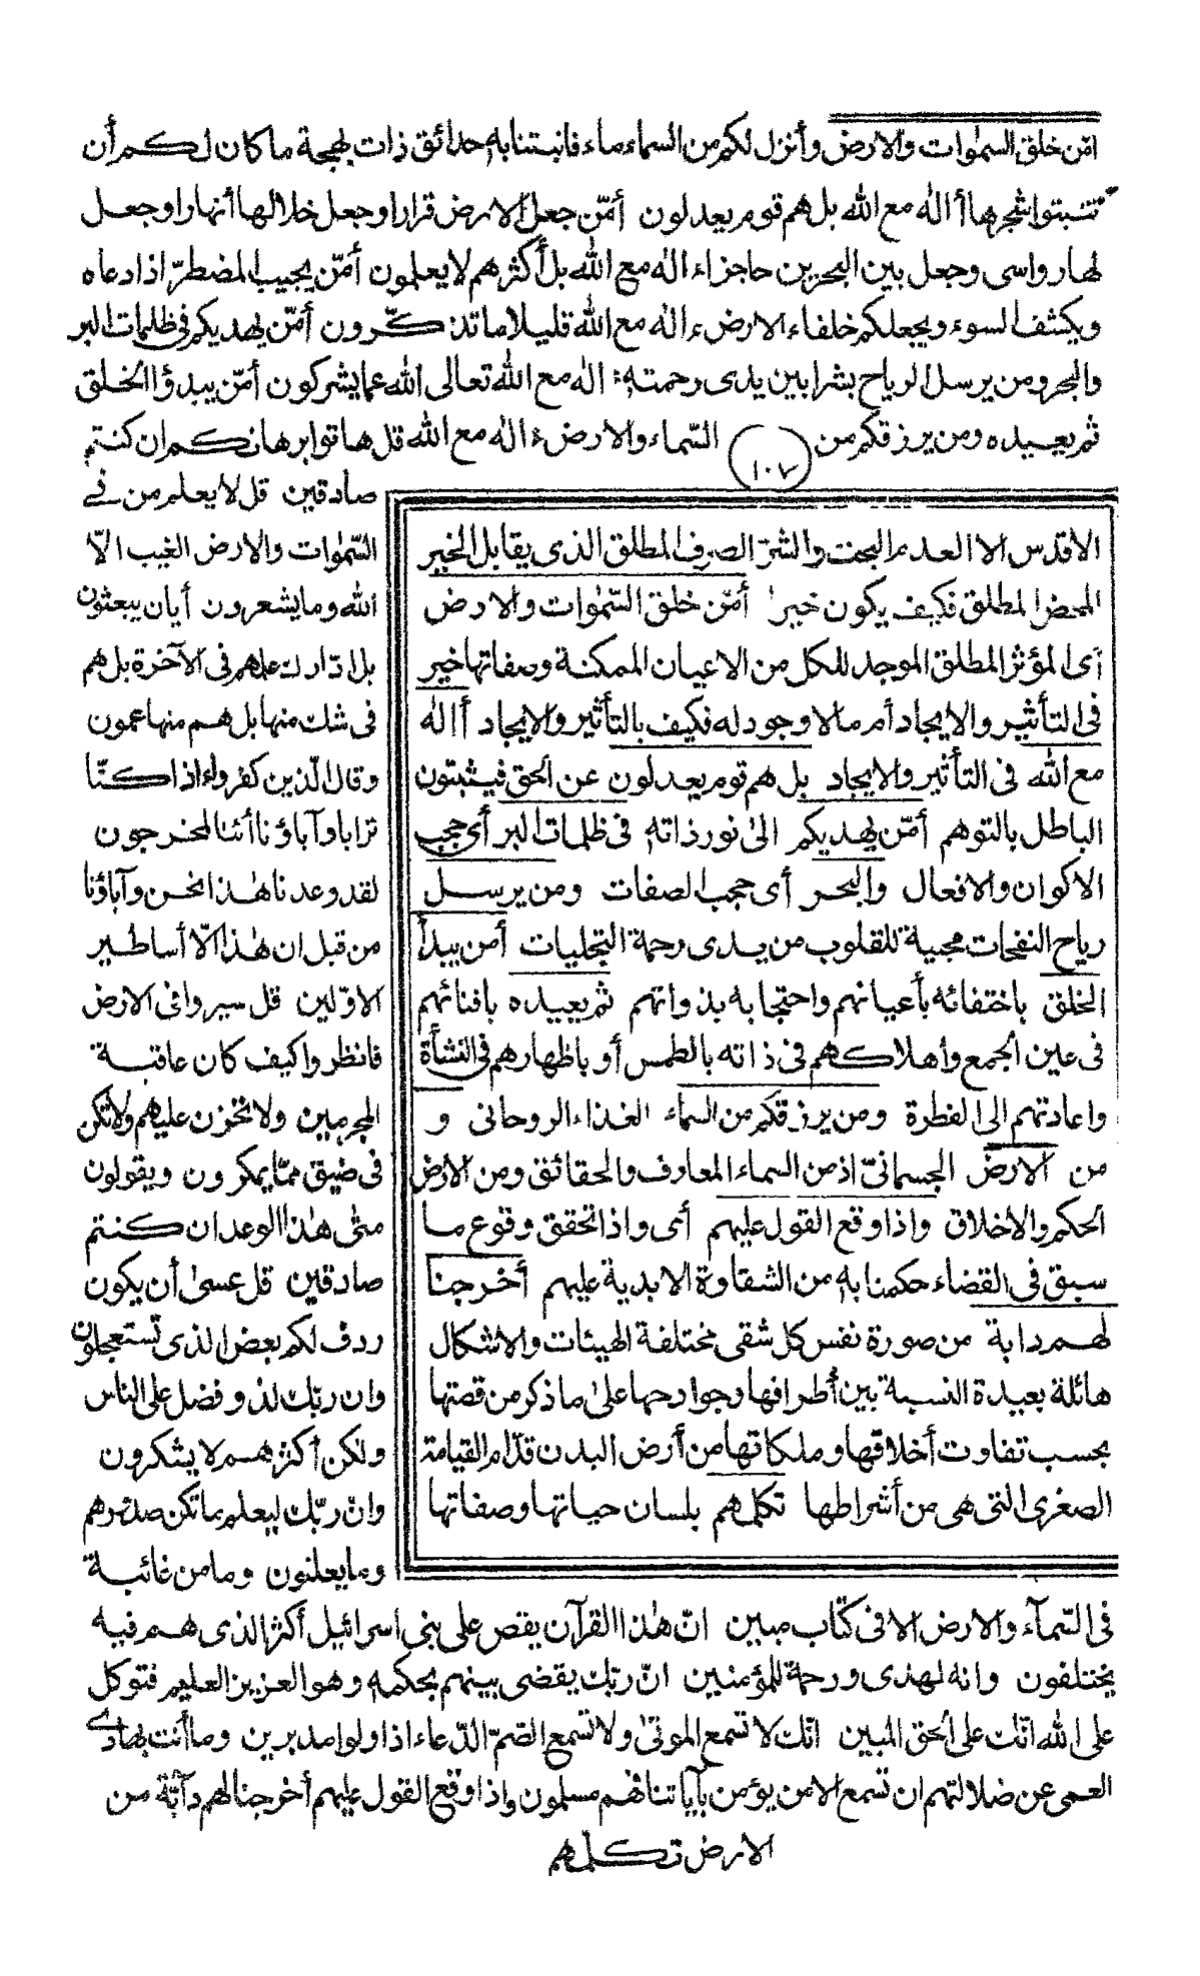 امّن خلق السمٰوات والارض وأنزل لكم من السماء ماء فانبتنا به حدائق ذات بهجة ما كان لكم أن
تنبتوا شجرها أاله مع الله بل هم قوم يعدلون أمّن جعل الارض قرارا وجعل خلالها أنهارا وجعل
لها رواسى وجعل بين البحرين حاجزا ءاله مع الله بل أكثرهم لا يعلمون أمّن يجيب المضطرّ اذا دعاه
ويكشف السوء ويجعلكم خلفاء الارض ءاله مع الله قليلا ما تذكّرون أمّن يهديكم فى ظلمات البر
والبحر ومن يرسل الرياح بشرا بين يدى رحمته ءاله مع الله تعالى الله عما يشركون أمّن يبدؤا الخلق
ثم يعيده ومن يرزقكم من السّماء والارض ءاله مع الله قل هاتوا برهانكم ان كنتم
١٠٧
صادقين قل لا يعلم من فى
السّمٰوات والارض الغيب الّا
الله وما يشعرون أيان يبعثون
بل ادّارك علمهم فى الآخرة بل هم
فى شك منها بل هم منها عمون
وقال الّذين كفروا ءاذا كنّا
ترابا وآباؤنا أئنا لمخرجون
لقد وعدنا هٰذا نحن وآباؤنا
من قبل ان هٰذا الّا أساطير
الاوّلين قل سيروا فى الارض
فانظروا كيف كان عاقبة
المجرمين ولا تحزن عليهم ولا تكن
فى ضيق ممّا يمكرون ويقولون
متٰى هٰذا الوعد ان كنتم
صادقين قل عسٰى أن يكون
ردف لكم بعض الذى تستعجلون
وان ربّك لذو فضل على الناس
ولكن أكثرهم لا يشكرون
وانّ ربّك ليعلم ما تكن صدورهم
وما يعلنون وما من غائبة
الاقدس الا العدم البحت والشرّ الصرف المطلق الذى يقابل الخير
المحض المطلق فكيف يكون خيرا أمّن خلق السّمٰوات والارض
أى المؤثر المطلق الموجد للكل من الاعيان الممكنة وصفاتها خير
فى التأثير والايجاد أم ما لا وجود له فكيف بالتأثير والايجاد أاله
مع الله فى التأثير والايجاد بل هم قوم يعدلون عن الحق فيثبتون
الباطل بالتوهم أمّن يهديكم الى نور ذاته فى ظلمات البر أى حجب
الاكوان والافعال والبحر أى حجب الصفات ومن يرسل
رياح النفحات محيية للقلوب من يدى رحمة التجليات أمن يبدأ
الخلق باختفائه بأعيانهم واحتجابه بذواتهم ثم يعيده بافنائهم
فى عين الجمع وأهلاكهم فى ذاته بالطمس أو باظهارهم فى النشأة
واعادتهم الى الفطرة ومن يرزقكم من السماء الغذاء الروحانى و
من الارض الجسمانىّ اذ من السماء المعارف والحقائق ومن الارض
الحكم والاخلاق واذا وقع القول عليهم أى واذا تحقق وقوع ما
سبق فى القضاء حكمنا به من الشقاوة الابدية عليهم أخرجنا
لهم دابة من صورة نفس كل شقى مختلفة الهيئات والاشكال
هائلة بعيدة النسبة بين أطرافها وجوارحها علىٰ ما ذكر من قصتها
بحسب تفاوت أخلاقها وملكاتها من أرض البدن قدّام القيامة
الصغرى التى هى من أشراطها تكلمهم بلسان حياتها وصفاتها
فى السّمآء والارض الا فى كتاب مبين انّ هٰذا القرآن يقص على بنى اسرائيل أكثر الذى هم فيه
يختلفون وانه لهدى ورحمة للمؤمنين انّ ربّك يقضى بينهم بحكمه وهو العزيز العليم فتوكل
على الله انّك على الحق المبين انّك لا تسمع الموتٰى ولا تسمع الصّمّ الدّعاء اذا ولوا مدبرين وما أنت بهادى
العمى عن ضلالتهم ان تسمع الا من يؤمن بآياتنا فهم مسلمون واذا وقع القول عليهم أخرجنا لهم دآبّة من
الارض تكلمهم